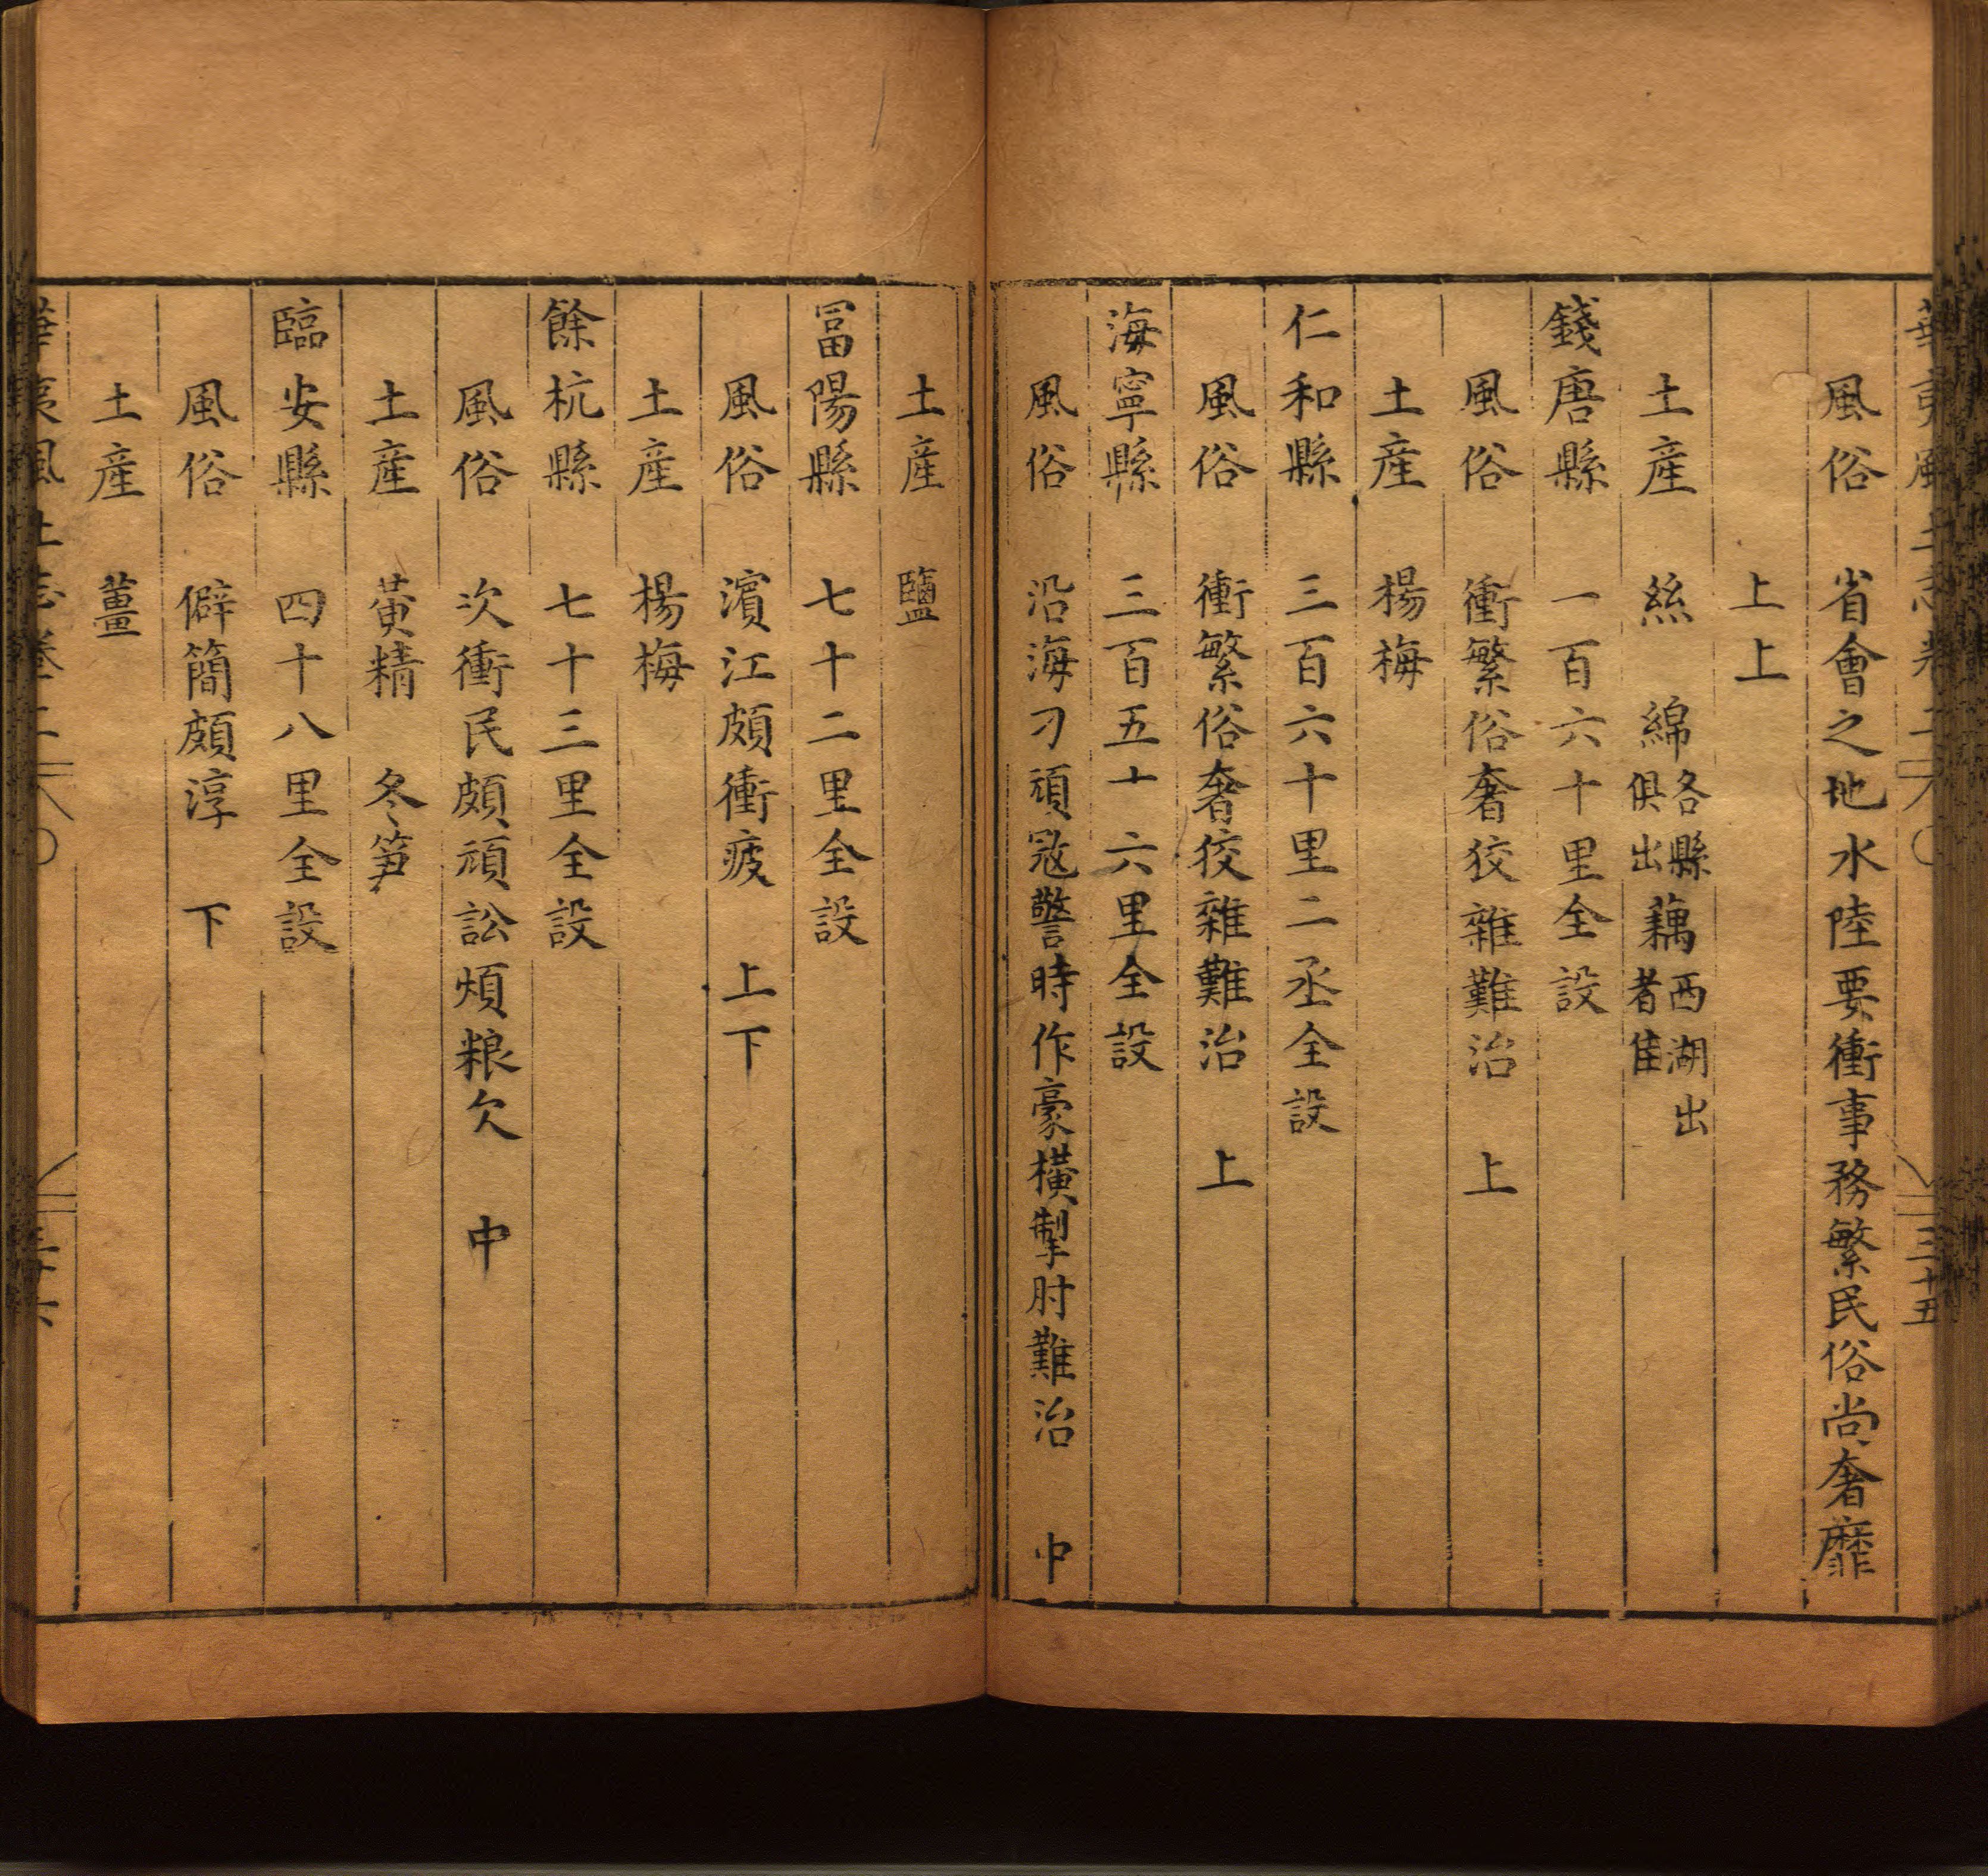 華夷風土志卷二
三十五
風俗 省會之地水陸要衝事務繁民俗尚奢靡
上上
土產 絲 綿各縣俱出藕西湖出者佳
錢唐縣 一百六十里全設
風俗 衝繁俗奢狡雜難治 上
土產 楊梅
仁和縣 三百六十里二丞全設
風俗 衝繁俗奢狡雜難治 上
海寧縣 三百五十六里全設
風俗 沿海刁頑寇警時作豪橫掣肘難治 中
土產 鹽
冨陽縣 七十二里全設
風俗 濱江頗衝疲 上下
土產 楊梅
餘杭縣 七十三里全設
風俗 次衝民頗頑訟煩粮欠 中
土產 黄精 冬笋
臨安縣 四十八里全設
風俗 僻簡頗淳 下
土產 薑
華夷風土志卷二